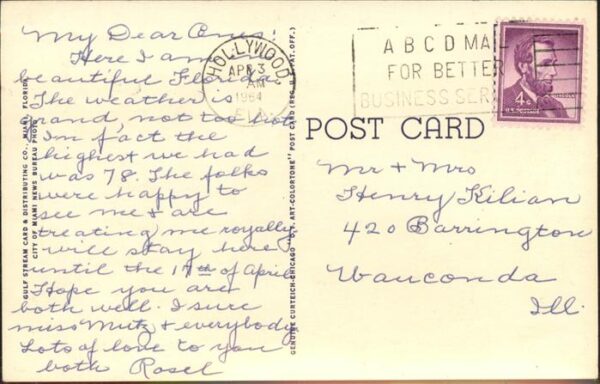 My Dear Ones:
Here I am
beautiful Florida
The weather is
grand, not too hot
In fact the
highest we had
was 78. The folks
were happy to
see me & are
treating me royally
will stay here
until the 17th of April
Hope you are
both well. I sure
miss Mutz & everybody
Lots of love to you
both Rosel
GULF STREAM CARD & DISTRIBUTING CO., MIAMI, FLORIDA
CITY OF MIAMI NEWS BUREAU PHOTO
GENUINE CURTEICH-CHICAGO "C.T. ART-COLORTONE" POST CARD (REG. U.S. PAT. OFF.)
HOLLYWOOD,
APR 3
AM
1964
FLA.
A B C D MAIL
FOR BETTER
BUSINESS SER
4¢
U.S. POSTAGE
POST CARD
Mr + Mrs
Henry Kilian
420 Barrington
Wauconda
Ill.